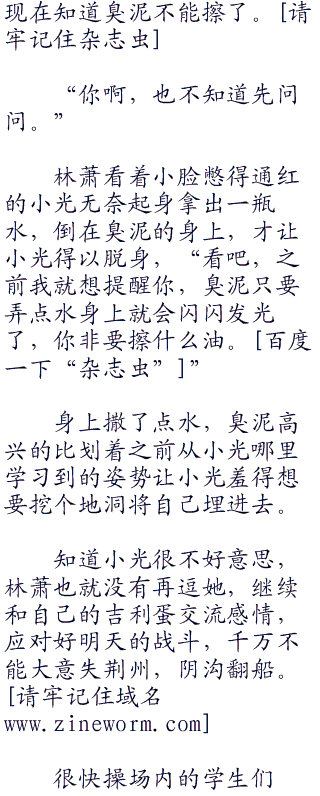 现在知道臭泥不能擦了。[请
牢记住杂志虫]
“你啊，也不知道先问
问。”
林萧看着小脸憋得通红
的小光无奈起身拿出一瓶
水，倒在臭泥的身上，才让
小光得以脱身，“看吧，之
前我就想提醒你，臭泥只要
弄点水身上就会闪闪发光
了，你非要擦什么油。[百度
一下“杂志虫”]”
身上撒了点水，臭泥高
兴的比划着之前从小光哪里
学习到的姿势让小光羞得想
要挖个地洞将自己埋进去。
知道小光很不好意思，
林萧也就没有再逗她，继续
和自己的吉利蛋交流感情，
应对好明天的战斗，千万不
能大意失荆州，阴沟翻船。
[请牢记住域名
www.zineworm.com]
很快操场内的学生们